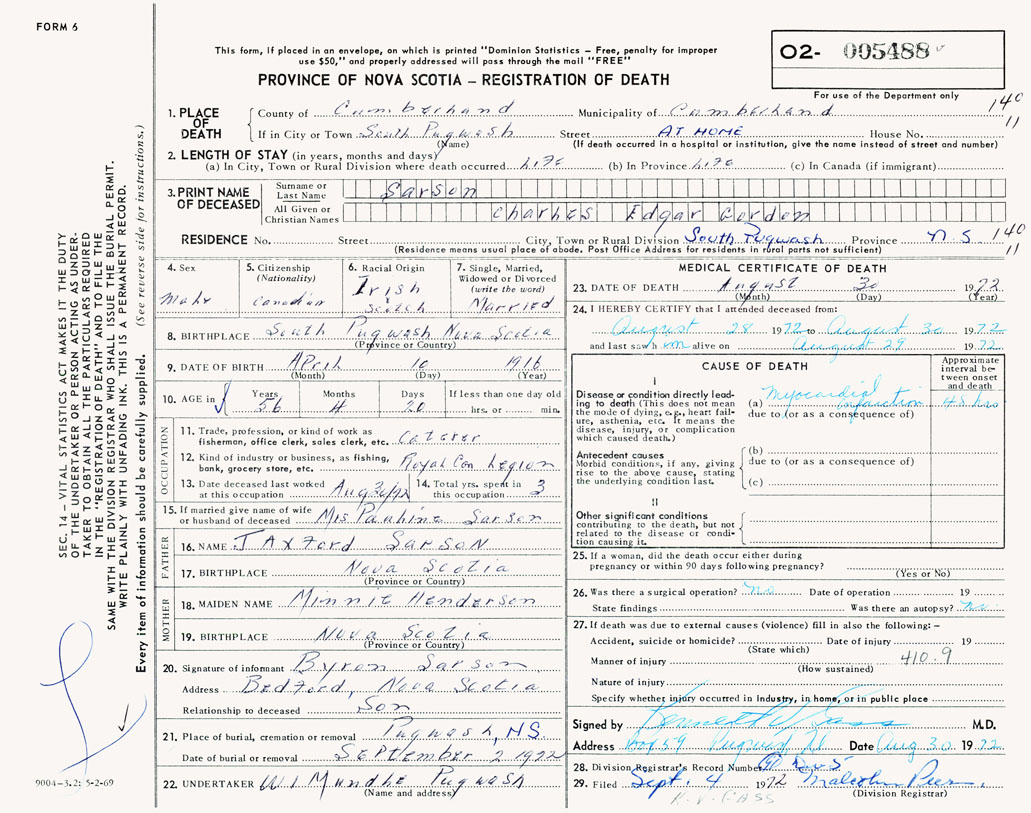 FORM 6
This form, if placed in an envelope, on which is printed "Dominion Statistics – Free, penalty for improper
use $50," and properly addressed will pass through the mail "FREE"
PROVINCE OF NOVA SCOTIA – REGISTRATION OF DEATH
02- 005488
For use of the Department only
140
11
1. PLACE OF DEATH
County of Cumberland Municipality of Cumberland
If in City or Town South Pugwash Street AT HOME House No.
(Name) (If death occurred in a hospital or institution, give the name instead of street and number)
2. LENGTH OF STAY (in years, months and days)
(a) In City, Town or Rural Division where death occurred Life (b) In Province Life (c) In Canada (if immigrant)
3. PRINT NAME OF DECEASED
Surname or Last Name Sarson
All Given or Christian Names Charles Edgar Gordon
RESIDENCE No. Street City, Town or Rural Division South Pugwash Province N S
140
11
(Residence means usual place of abode. Post Office Address for residents in rural parts not sufficient)
4. Sex
Male
5. Citizenship (Nationality)
Canadian
6. Racial Origin
Irish
Scotch
7. Single, Married, Widowed or Divorced (write the word)
Married
8. BIRTHPLACE South Pugwash Nova Scotia
(Province or Country)
9. DATE OF BIRTH April 10 1916
(Month) (Day) (Year)
10. AGE in Years 56 Months 4 Days 20 If less than one day old hrs. or min.
OCCUPATION
11. Trade, profession or kind of work as
fisherman, office clerk, sales clerk, etc.
12. Kind of industry or business, as fishing,
bank, grocery store, etc. Royal Can Legion
13. Date deceased last worked
at this occupation Aug 30/72
14. Total yrs. spent in
this occupation 3
15. If married give name of wife
or husband of deceased Mrs Pauline Sarson
FATHER
16. NAME Jaxford Sarson
17. BIRTHPLACE Nova Scotia
(Province or Country)
MOTHER
18. MAIDEN NAME Minnie Henderson
19. BIRTHPLACE Nova Scotia
(Province or Country)
20. Signature of informant Byron Sarson
Address Bedford, Nova Scotia
Relationship to deceased Son
21. Place of burial, cremation or removal Pugwash, NS
Date of burial or removal September 2 1972
22. UNDERTAKER Pugwash
(Name and address)
MEDICAL CERTIFICATE OF DEATH
23. DATE OF DEATH August 30 1972
(Month) (Day) (Year)
24. I HEREBY CERTIFY that I attended deceased from:
August 28 1972 to August 30 1972
and last saw him alive on August 29 1972
CAUSE OF DEATH
Approximate interval between onset and death
I
Disease or condition directly leading to death (This does not mean the mode of dying, e.g., heart failure, asthenia, etc. It means the disease, injury, or complication which caused death.)
(a) Myocardial infarction 48 hrs
due to (or as a consequence of)
Antecedent causes
Morbid conditions, if any, giving rise to the above cause, stating the underlying condition last.
(b)
due to (or as a consequence of)
(c)
II
Other significant conditions
contributing to the death, but not related to the disease or condition causing it.
25. If a woman, did the death occur either during
pregnancy or within 90 days following pregnancy?
(Yes or No)
26. Was there a surgical operation? No Date of operation 19
State findings Was there an autopsy? No
27. If death was due to external causes (violence) fill in also the following: –
Accident, suicide or homicide? Date of injury 19
(State which)
Manner of injury 410.9
(How sustained)
Nature of injury
Specify whether injury occurred in Industry, in home, or in public place
Signed by Kenneth V Cass M.D.
Address Box 59 Pugwash Date Aug 30 1972
28. Division Registrar's Record Number
29. Filed Sept. 4 1972 Malcolm
(Division Registrar)
K. V. CASS
SEC. 14 – VITAL STATISTICS ACT MAKES IT THE DUTY
OF THE UNDERTAKER OR PERSON ACTING AS UNDER-
TAKER TO OBTAIN ALL THE PARTICULARS REQUIRED
IN THE "REGISTRATION OF DEATH" AND TO FILE THE
SAME WITH THE DIVISION REGISTRAR WHO SHALL ISSUE THE BURIAL PERMIT.
WRITE PLAINLY WITH UNFADING INK. THIS IS A PERMANENT RECORD.
Every item of information should be carefully supplied. (See reverse side for instructions.)
9004-3.2: 5-2-69